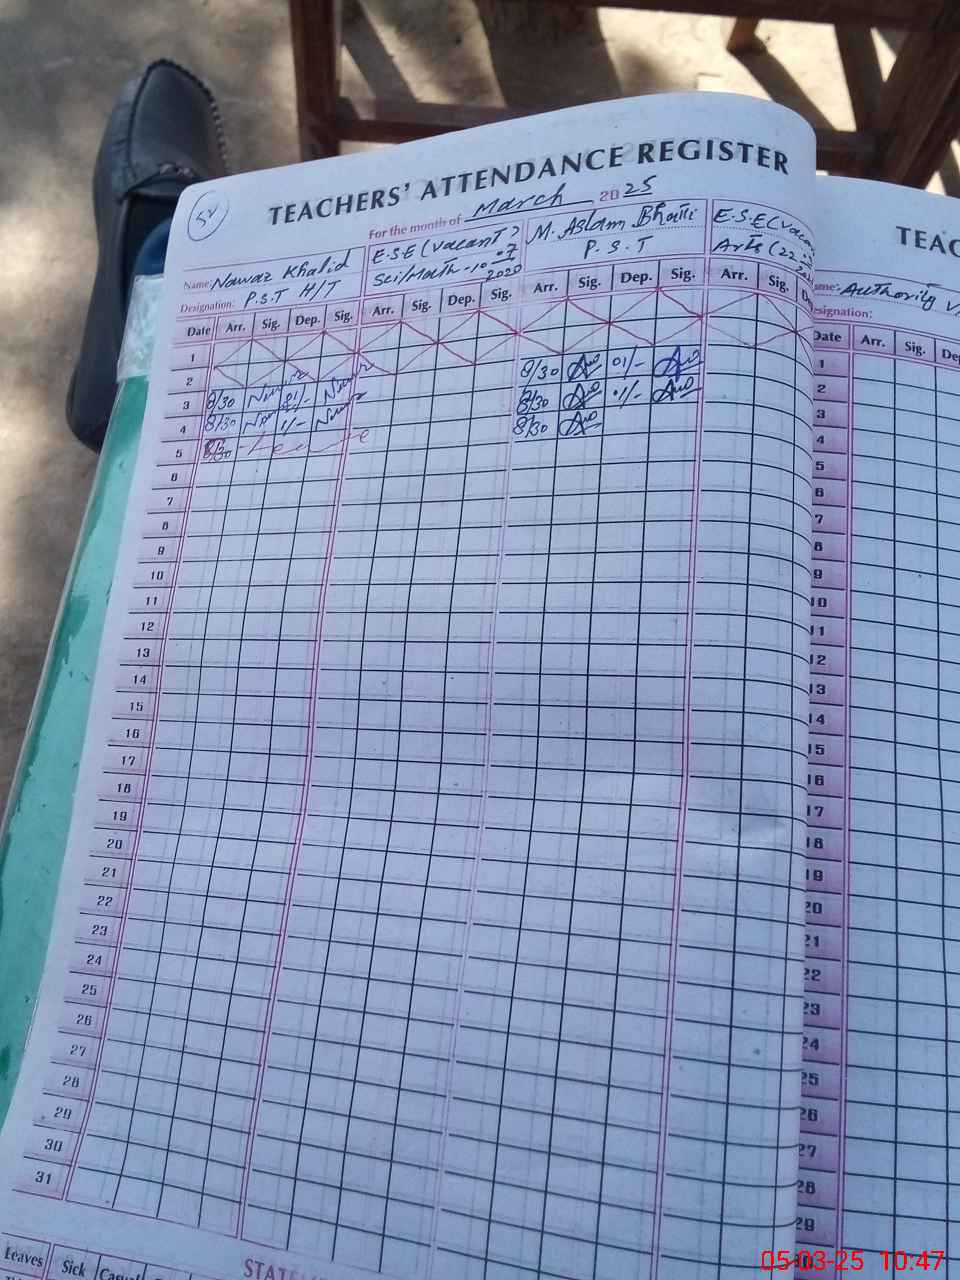 52
TEACHERS' ATTENDANCE REGISTER
For the month of March 2025
Name Nawaz Khalid
Designation: P.S.T H/T
E.S.E (vacant)
Sci/Math-10-07
2020
M. Aslam Bhatti
P.S.T
E.S.E (vaca
Arts (22
Date Arr. Sig. Dep. Sig. Arr. Sig. Dep. Sig. Arr. Sig. Dep. Sig. Arr. Sig. De
1
2
3 8/30 Nawaz 01/- Nawaz 8/30 01/-
4 8/30 Nawaz 1/- Nawaz 8/30 01/-
5 8/30 Leave 8/30
6
7
8
9
10
11
12
13
14
15
16
17
18
19
20
21
22
23
24
25
26
27
28
29
30
31
Leaves Sick Casual
STATEM
TEAC
ame: Authority
esignation:
Date Arr. Sig. Dep
1
2
3
4
5
6
7
8
9
10
11
12
13
14
15
16
17
18
19
20
21
22
23
24
25
26
27
28
29
05-03-25 10:47